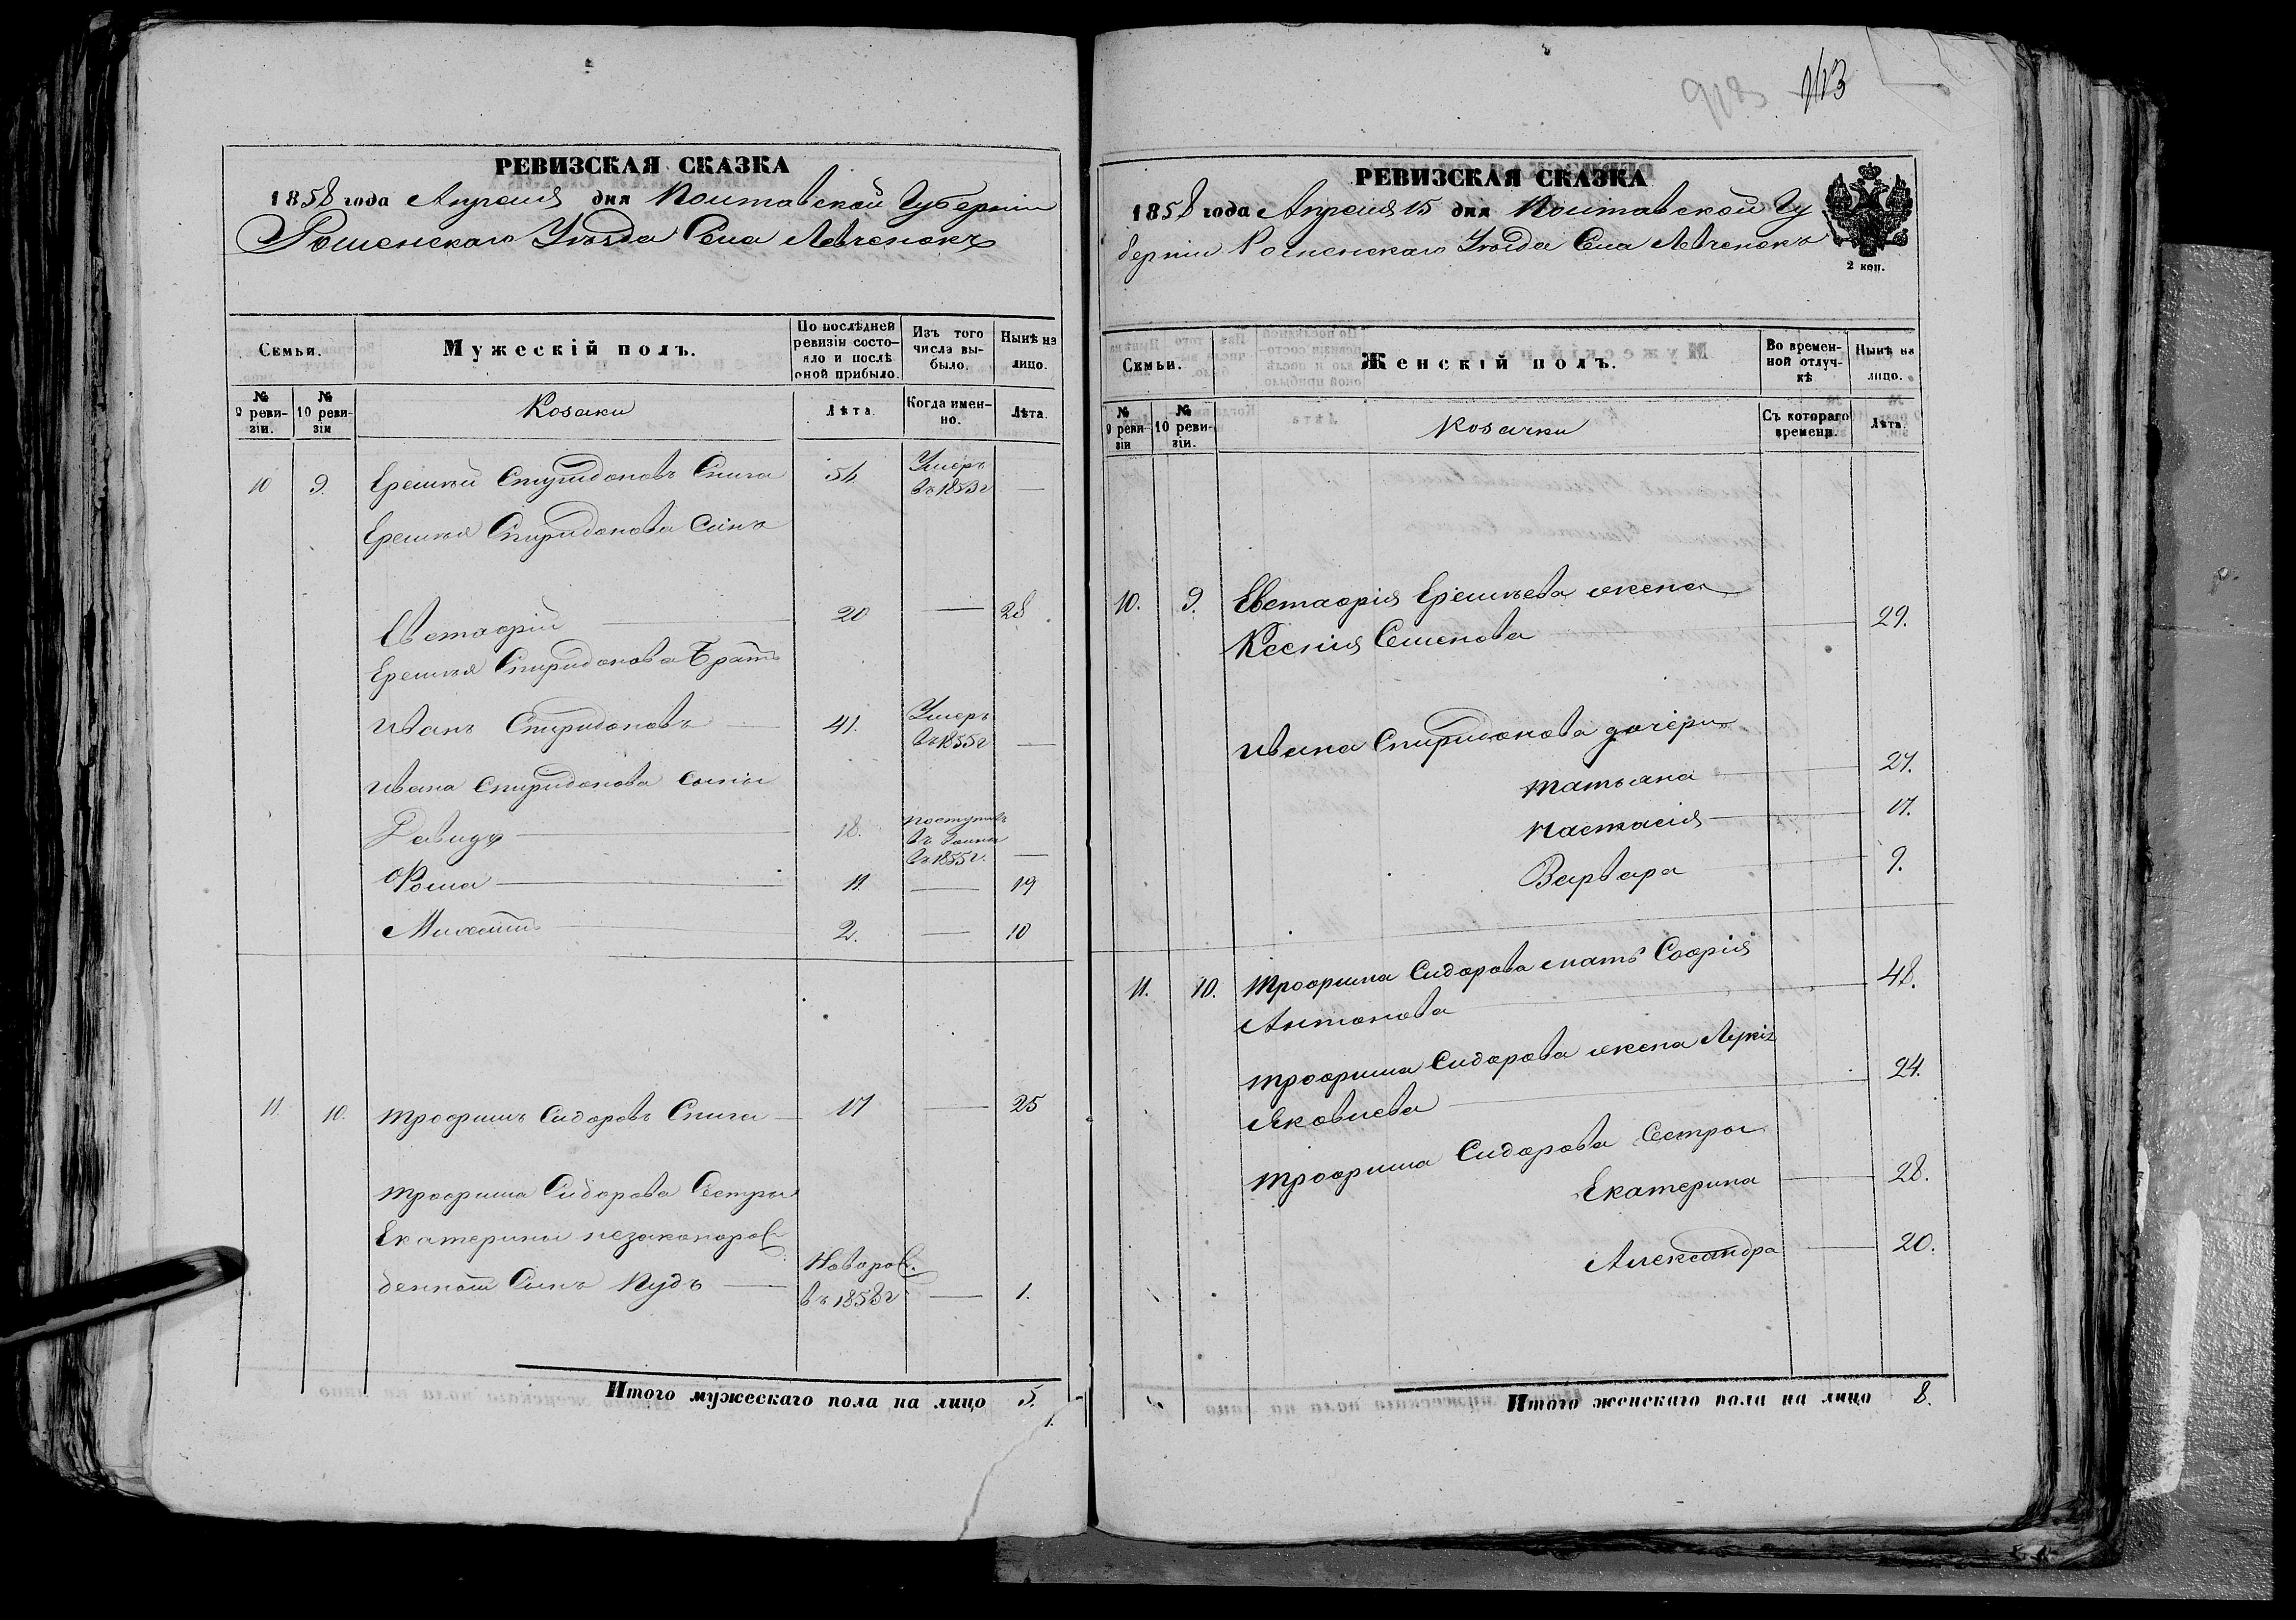 РЕВИЗСКАЯ СКАЗКА
1858 года Апреля дня Полтавской Губерніи
Роменскаго Уѣзда Села Левченокъ
Семьи.
Мужескій полъ.
По послѣдней ревизіи состояло и послѣ оной прибыло.
Изъ того числа выбыло.
Нынѣ на лицо.
№ 9 ревизіи.
№ 10 ревизіи
Козаки
Лѣта.
Когда именно.
Лѣта.
10 9. Еремѣй Спиридоновъ Спига 54 Умеръ въ 1853 г —
Еремѣя Спиридонова Сынъ
Евстафій — 20 — 28.
Еремѣя Спиридонова Братъ
Иванъ Спиридоновъ — 41. Умеръ въ 1855 г —
Ивана Спиридонова сыны
Давидъ — 18. поступилъ въ въ 1855 г. —
Фома — 11. — 19
— 2. — 10
11. 10. Трофимъ Сидоровъ Спига — 17 — 25
Трофима Сидорова Сестры
Екатерины незаконорож
денной Сынъ Нудъ — Новорож. въ 1858 г — 1.
Итого мужескаго пола на лицо 5.
913
РЕВИЗСКАЯ СКАЗКА
1858 года Апреля 15 дня Полтавской Гу
берніи Роменскаго Уѣзда Села Левченокъ
2 коп.
Семьи.
Женскій полъ.
Во временной отлучкѣ
Нынѣ на лицо.
№ 9 ревизіи
№ 10 ревизіи.
Козачки
Съ котораго времени.
Лѣта.
10. 9. Евстафія Еремѣева жена
Ксенія Семенова — 29.
Ивана Спиридонова дочери
Татьяна — 27.
Настасія — 17.
Варвара — 9.
11. 10. Трофима Сидорова мать Софія
Антонова — 48.
Трофима Сидорова жена
Яковлева — 24.
Трофима Сидорова Сестры
Екатерина — 28.
Александра — 20.
Итого женскаго пола на лицо 8.